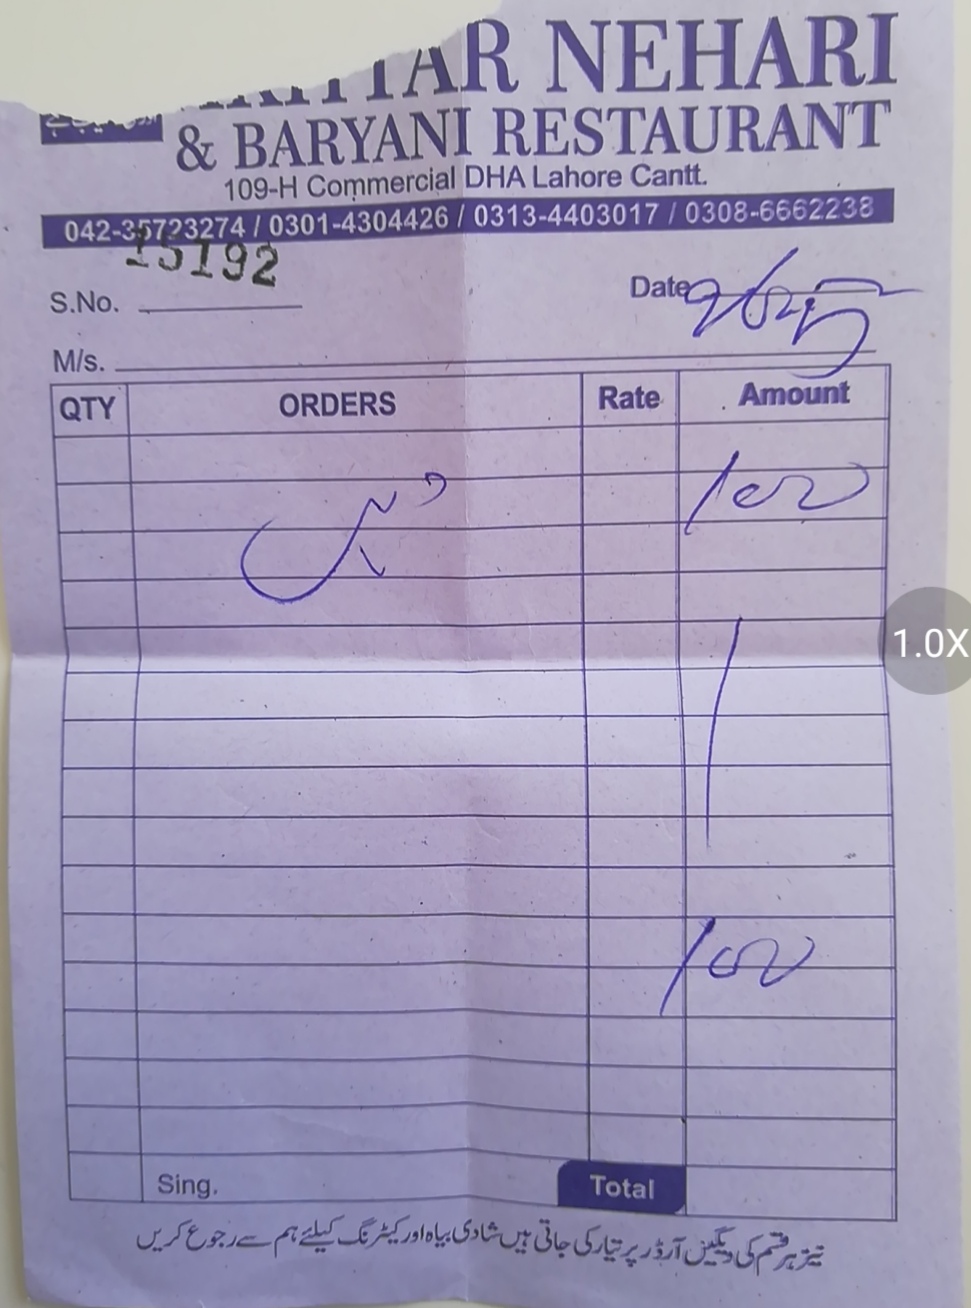 NEHARI
& BARYANI RESTAURANT
109-H Commercial DHA Lahore Cantt.
042-35723274 / 0301-4304426 / 0313-4403017 / 0308-6662238
15192
S.No.
Date
M/s.
QTY ORDERS Rate Amount
100
100
Sing. Total
نیز ہر قسم کی دیگیں آرڈر پر تیار کی جاتی ہیں شادی بیاہ اور کیٹرنگ کیلئے ہم سے رجوع کریں
1.0X